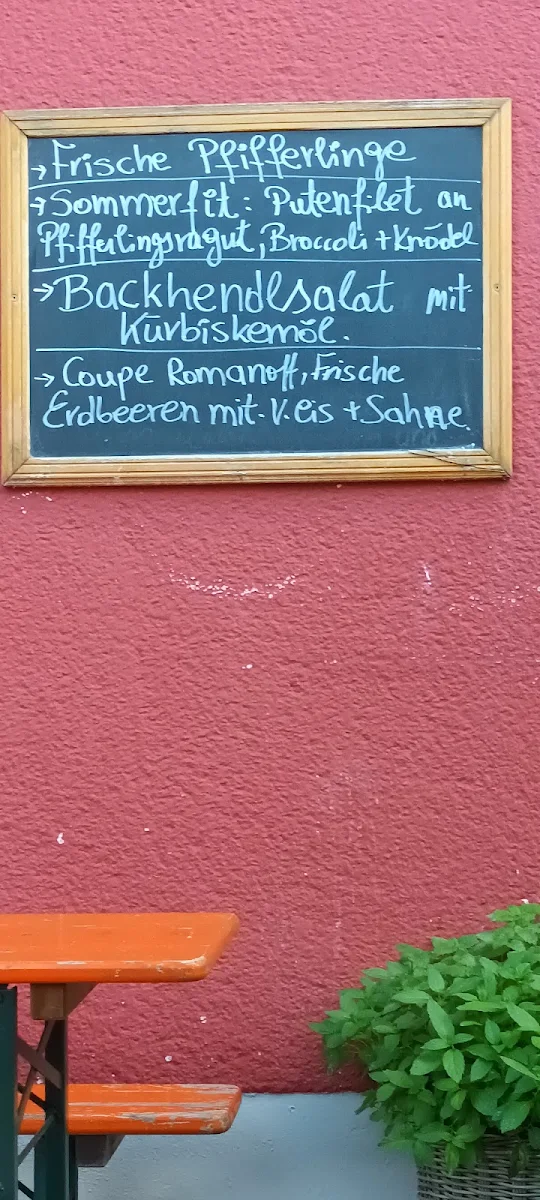 → Frische Pfifferlinge
→ Sommerfit: Putenfilet an
Pfifferlingsragut, Broccoli + Knödel
→ Backhendlsalat mit
Kürbiskernöl.
→ Coupe Romanoff, Frische
Erdbeeren mit. V. eis + Sahne.